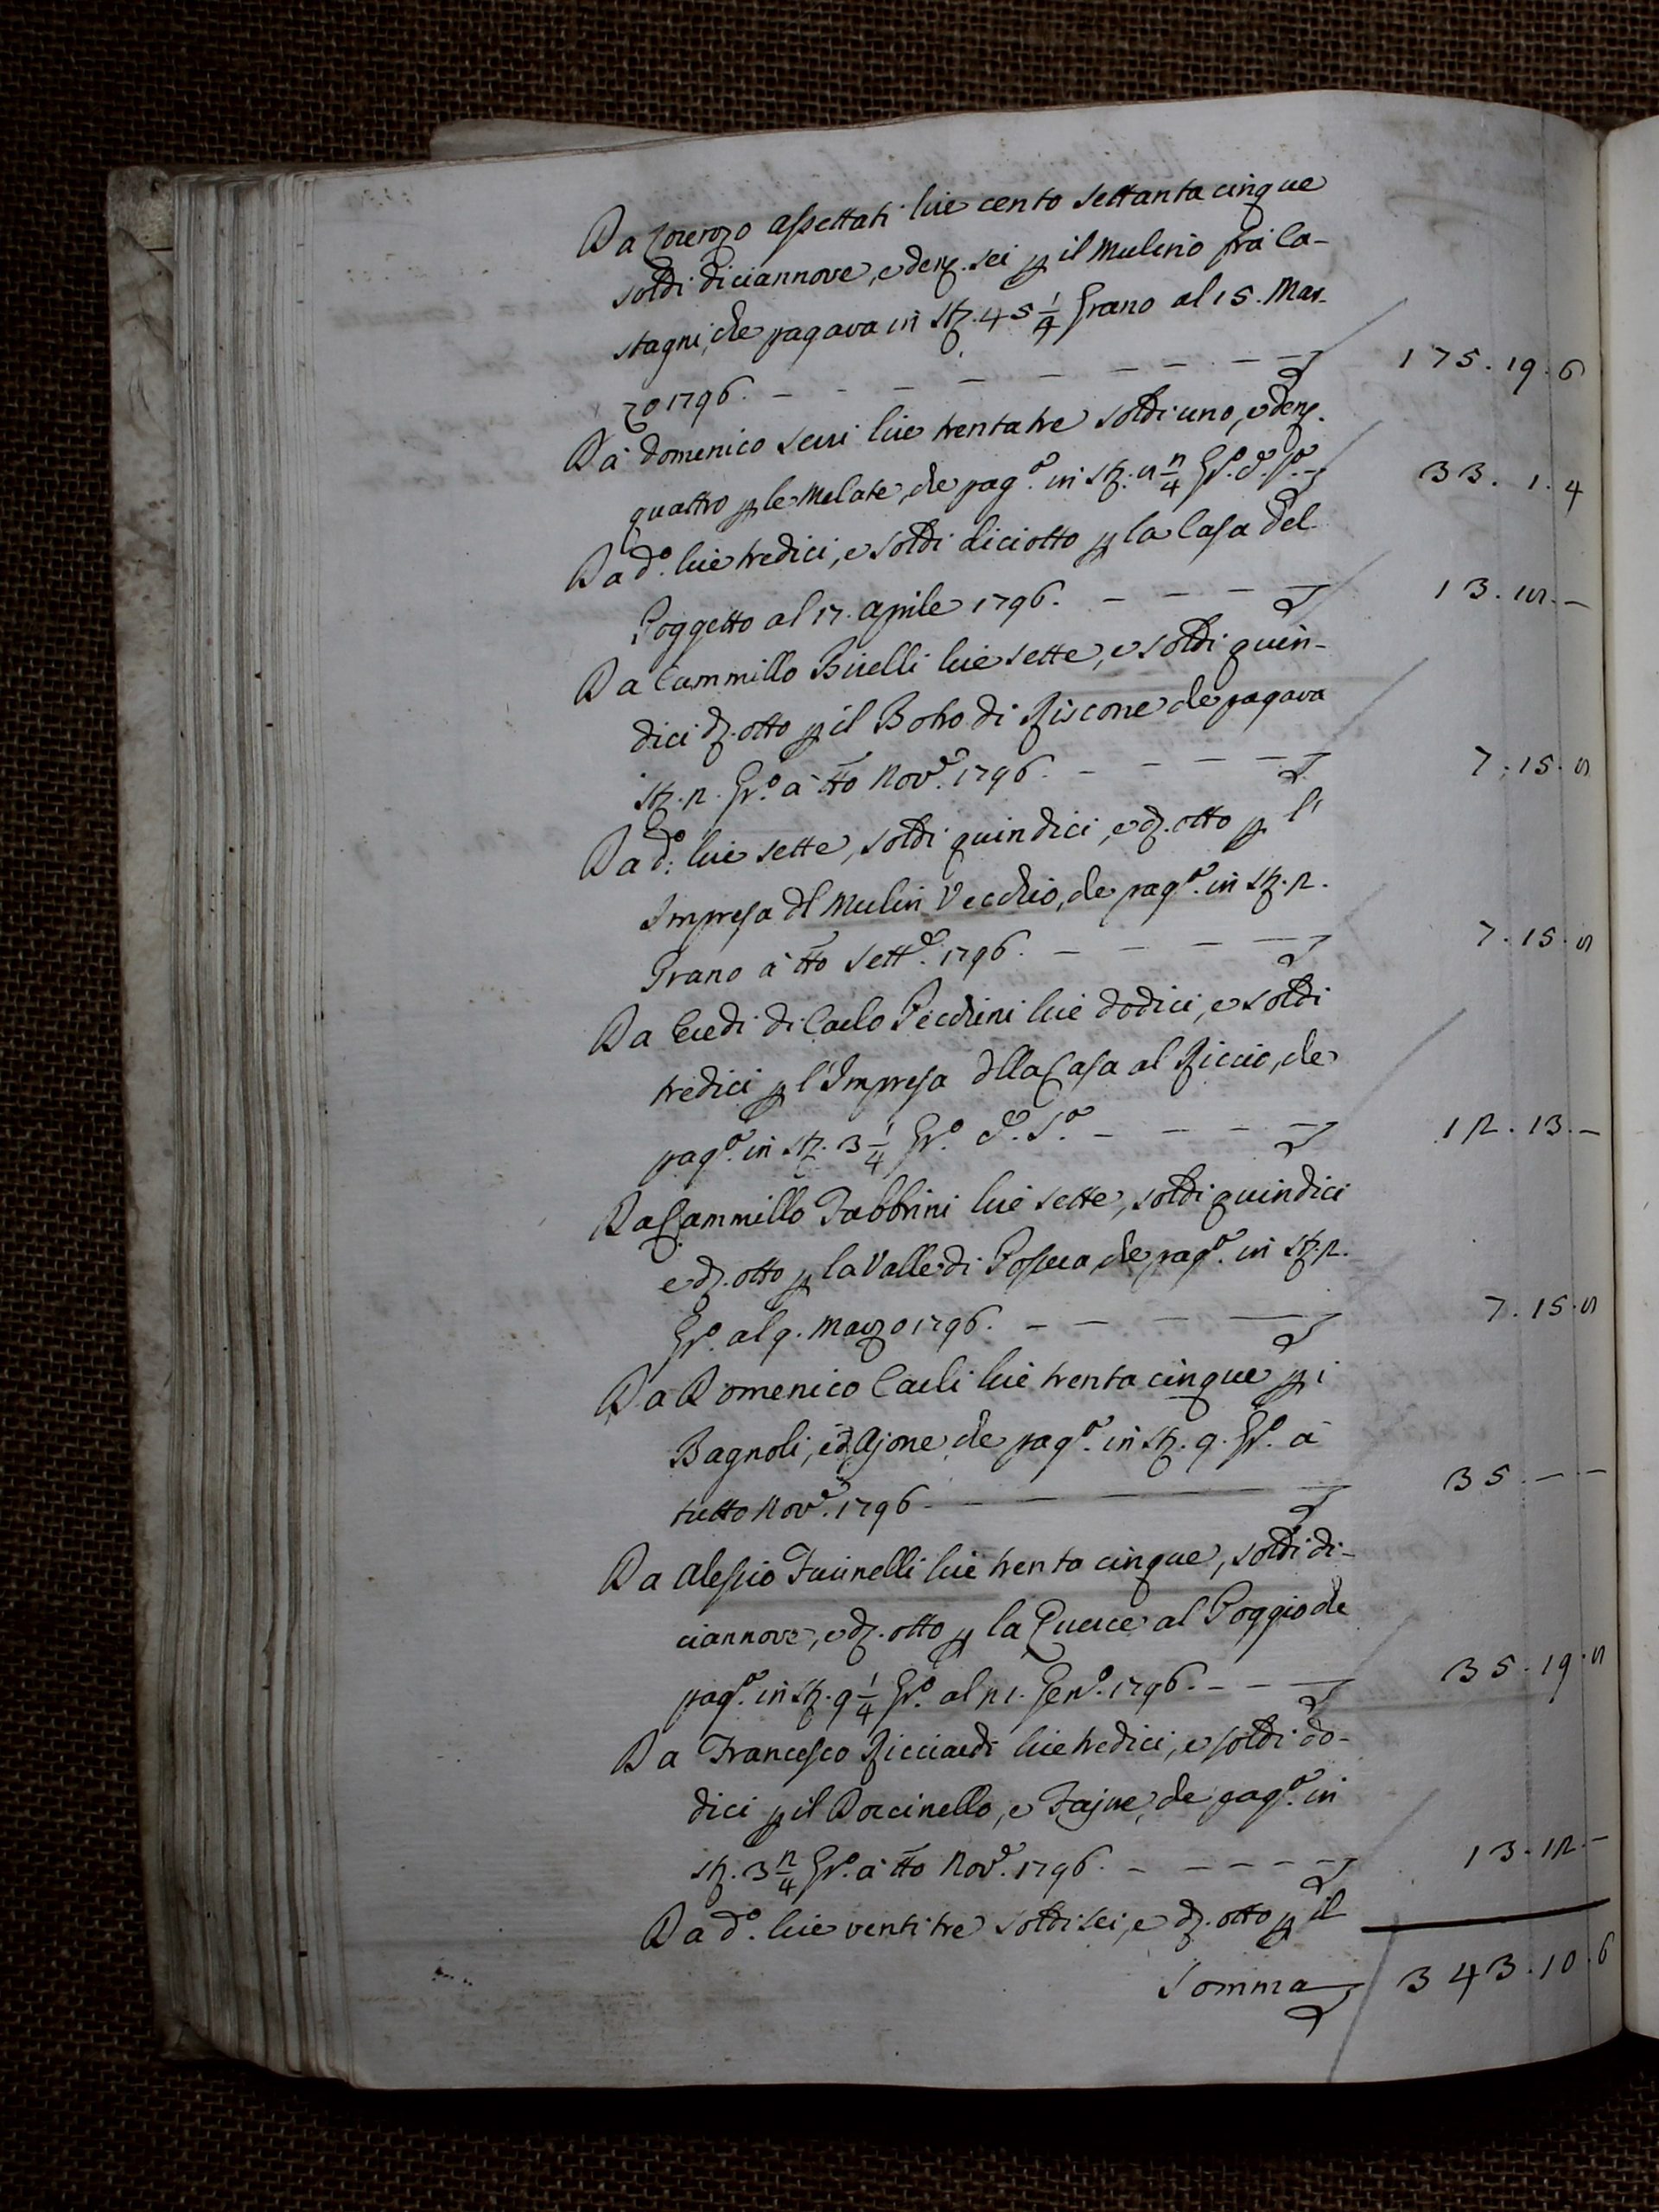 Da Lorenzo Assettati lire cento settanta cinque
soldi diciannove, e den. sei p il Mulino fra Ca-
stagni, che pagava in St. 45 1/4 Grano al 15. Mar-
zo 1796. — — — — — — — — 175.19.6
Da Domenico Serri lire trentatre soldi uno, e den.
quattro p le Melate, che pag.a in St. 8 2/4 Gr.o d.o S.o — 33.1.4
Da d.o lire tredici, e soldi diciotto p la Casa del
Poggetto al 17. Aprile 1796. — — — — 13.18.—
Da Cammillo Birelli lire sette, e soldi quin-
dici d. otto p il Botro di Riscone che pagava
St. 2. Gr.o a tto Nov.e 1796. — — — — 7.15.8
Da d.o lire sette, soldi quindici, e d. otto p l'
Impresa dl Mulin Vecchio, che pag.a in St. 2.
Grano a tto Sett.e 1796. — — — — 7.15.8
Da Eredi di Carlo Pecchini lire dodici, e soldi
tredici p l'Impresa dlla Casa al Riccio, che
pag.a in St. 3 1/4 Gr.o d.o S.o — — — — 12.13.—
Da Cammillo Fabbrini lire sette, soldi quindici
e d. otto p la Valle di che pag.a in St. 2.
Gr.o al 9. Marzo 1796. — — — — 7.15.8
Da Domenico Carli lire trenta cinque p i
Bagnoli, ed Ajone che pag.a in St. 9. Gr.o a
tutto Nov.e 1796 — — — — — — 35.—.—
Da Alessio Fucinelli lire trenta cinque, soldi di-
ciannove, e d. otto p la Querce al Poggio che
pag.a in St. 9 1/4 Gr.o al 21. Gen.o 1796. — — — 35.19.8
Da Francesco Ricciardi lire tredici, e soldi do-
dici p il Dorcinello, e che pag.a in
St. 3 2/4 Gr.o a tto Nov.e 1796. — — — — — 13.12.—
Da d.o lire ventitre soldi sei, e d. otto p il
Somma 343.10.6